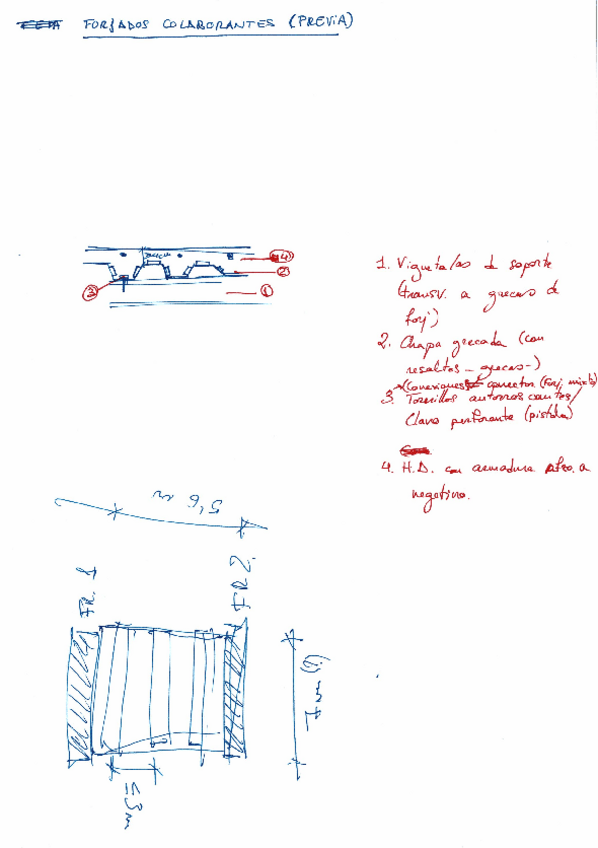 FORJADOS COLABORANTES (PREVIA)
4
2
3
1
1. Vigueta/as de soporte
(transv. a grecas de
forj)
2. Chapa grecada (con
resaltos - grecas -)
(Conexiones conector (forj. mixto)
3. Tornillos autorroscantes/
Clavo perforante (pistola)
4. H.D. con armadura a
negativo.
5'6 m
FR. 1
FR 2.
1 m (i)
≤ 3m